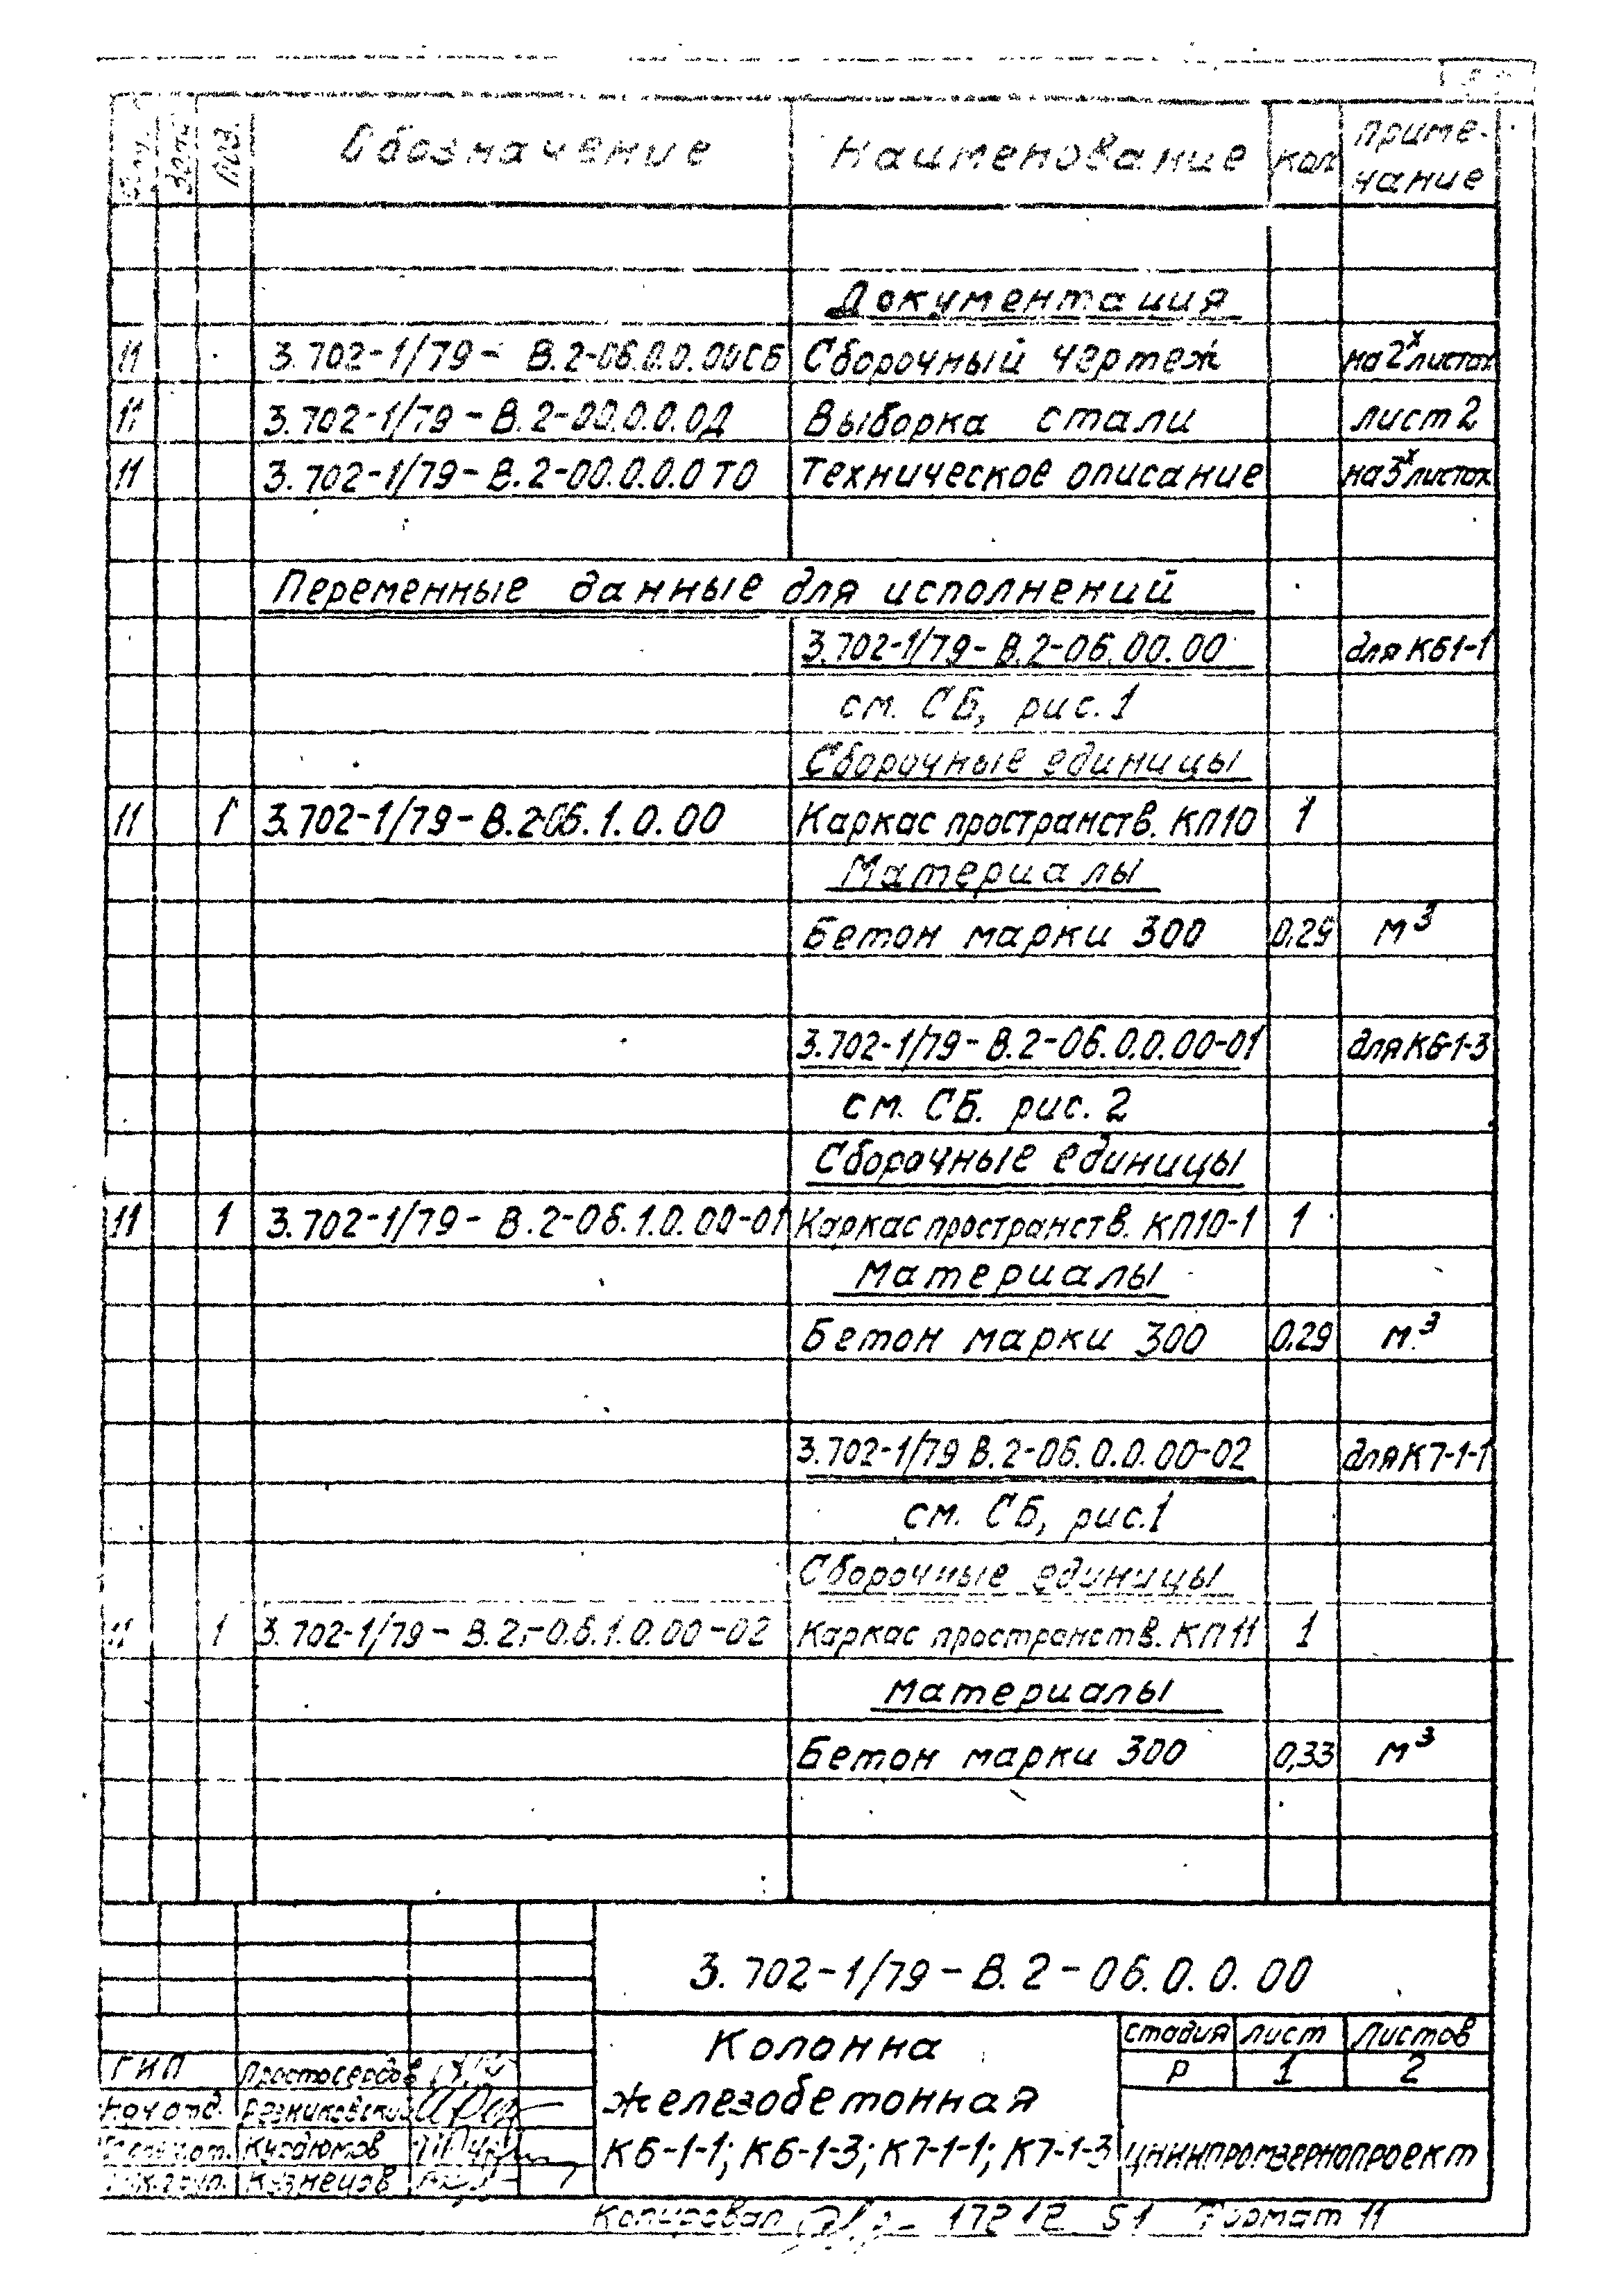 Поз. Обозначение Наименование Кол Приме-
чание
Документация
11 3.702-1/79- В.2-06.0.0.00СБ Сборочный чертеж на 2х листах
11 3.702-1/79-В.2-00.0.0.0Д Выборка стали лист 2
11 3.702-1/79-В.2-00.0.0.0ТО Техническое описание на 3х листах
Переменные данные для исполнений
3.702-1/79-В.2-06.00.00 для К61-1
см. СБ, рис. 1
Сборочные единицы
11 1 3.702-1/79-В.2-06.1.0.00 Каркас пространств. КП10 1
Материалы
Бетон марки 300 0.29 м³
3.702-1/79-В.2-06.0.0.00-01 для К6-1-3
см. СБ. рис. 2
Сборочные единицы
11 1 3.702-1/79-В.2-06.1.0.00-01 Каркас пространств. КП10-1 1
Материалы
Бетон марки 300 0.29 м³
3.702-1/79 В.2-06.0.0.00-02 для К7-1-1
см. СБ, рис.1
Сборочные единицы
11 1 3.702-1/79-В.2.-0.6.1.0.00-02 Каркас пространств. КП11 1
Материалы
Бетон марки 300 0,33 м³
3.702-1/79-В.2-06.0.0.00
Колонна
железобетонная
К6-1-1; К6-1-3; К7-1-1; К7-1-3
Стадия Лист Листов
Р 1 2
ЦНИИПРОМЗЕРНОПРОЕКТ
ГИП Простосердов
Нач отд. Резниковский
Кузнецов
Копировал 17212 51 Формат 11